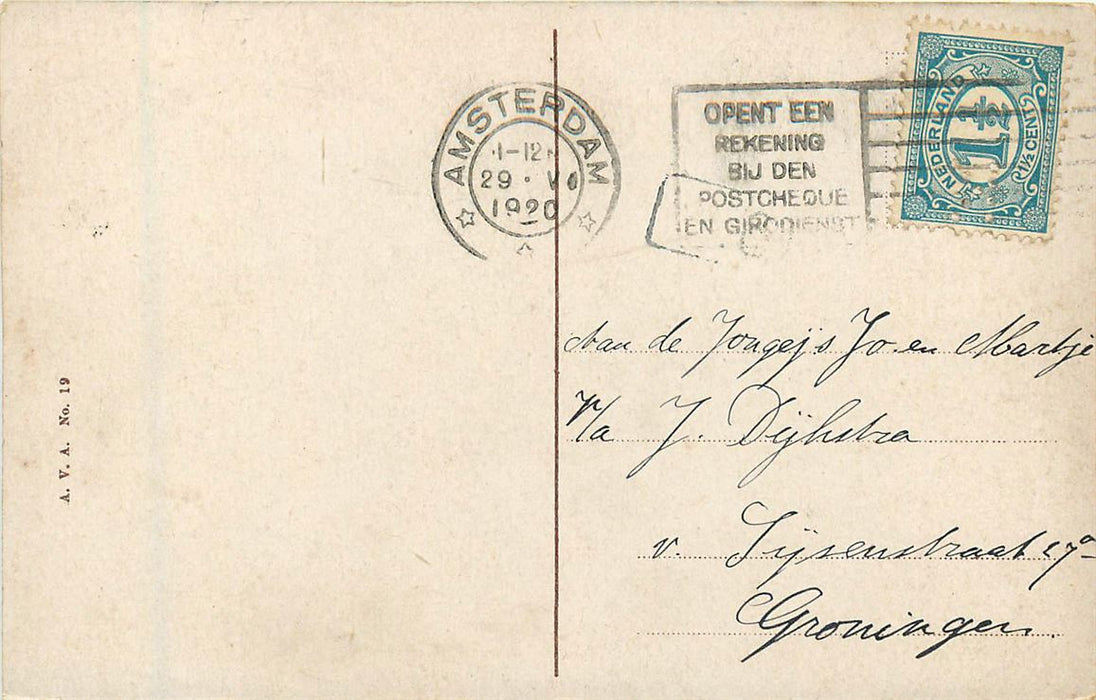 AMSTERDAM
1-12
29 · VI
1920
OPENT EEN
REKENING
BIJ DEN
POSTCHEQUE
EN GIRODIENST
NEDERLAND
1½
(1½ CENT)
Aan de Jongejs Jo en Martje
P/a J. Dijkstra
v. Sijsenstraat 17a
Groningen
A. V. A. No. 19